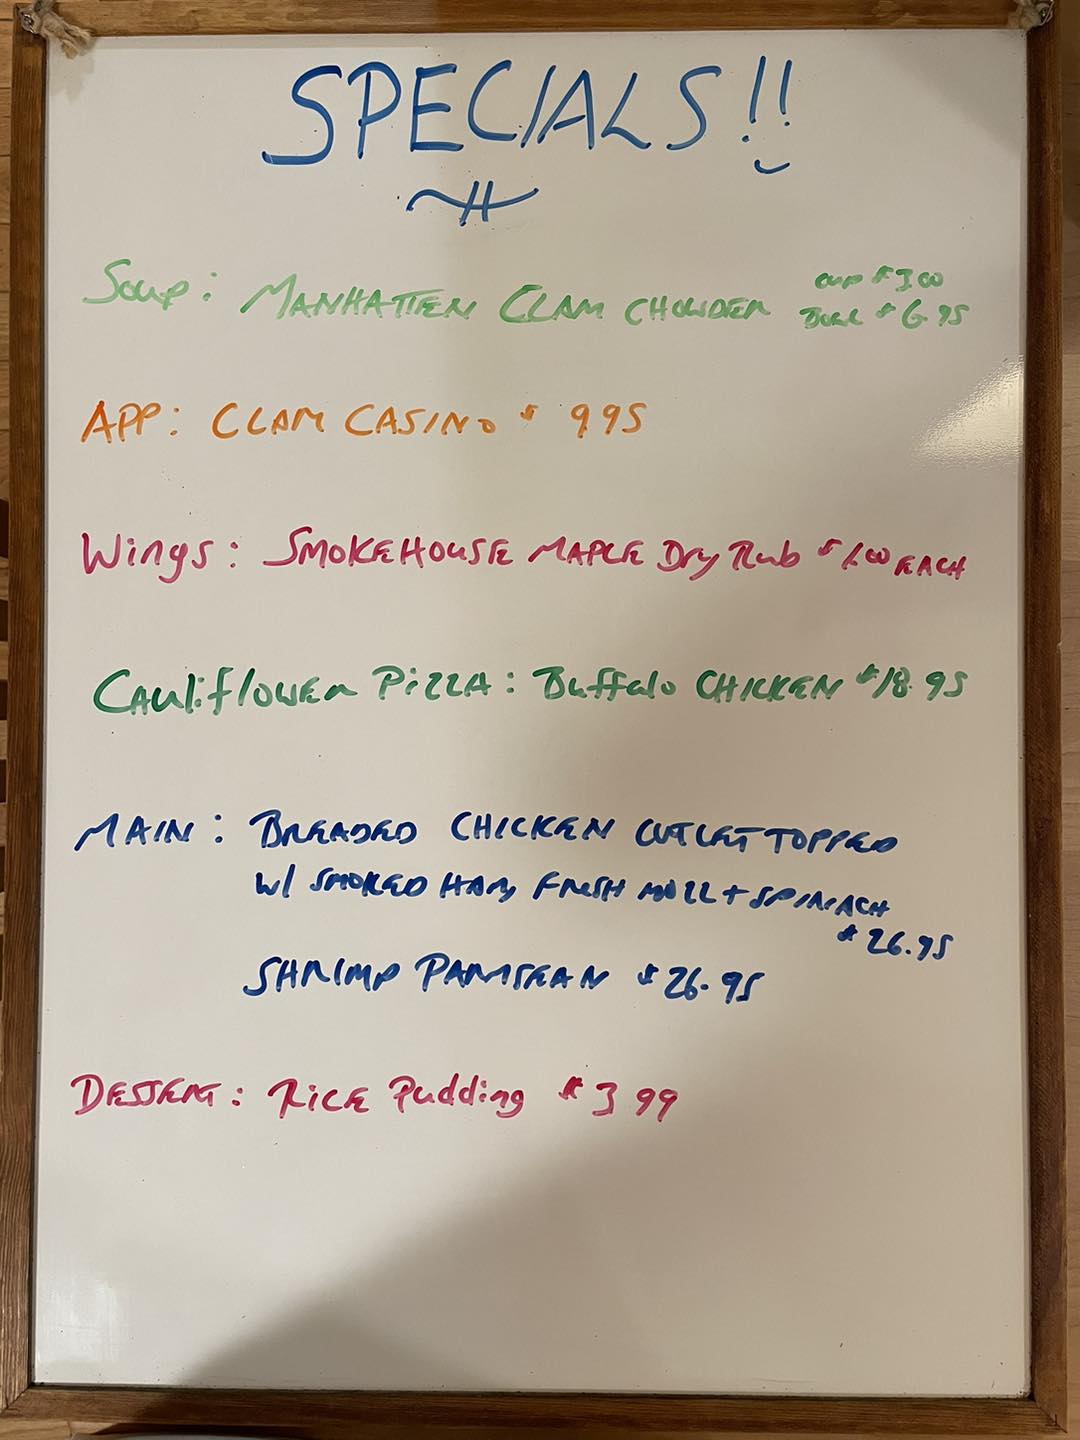 SPECIALS!!
Soup: MANHATTEN CLAM CHOWDER CUP $3.00
BOWL $6.95
APP: CLAM CASINO $ 9.95
Wings: SMOKEHOUSE MAPLE Dry Rub $1.00 EACH
Cauliflower Pizza: Buffalo CHICKEN $18.95
MAIN: BREADED CHICKEN CUTLET TOPPED
W/ SMOKED HAM, FRESH MOZZ + SPINACH
$26.95
SHRIMP PARMSEAN $26.95
DESSERT: RICE Pudding $3.99